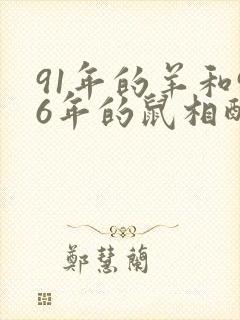 91年的羊和
6年的鼠相
鄭慧蘭